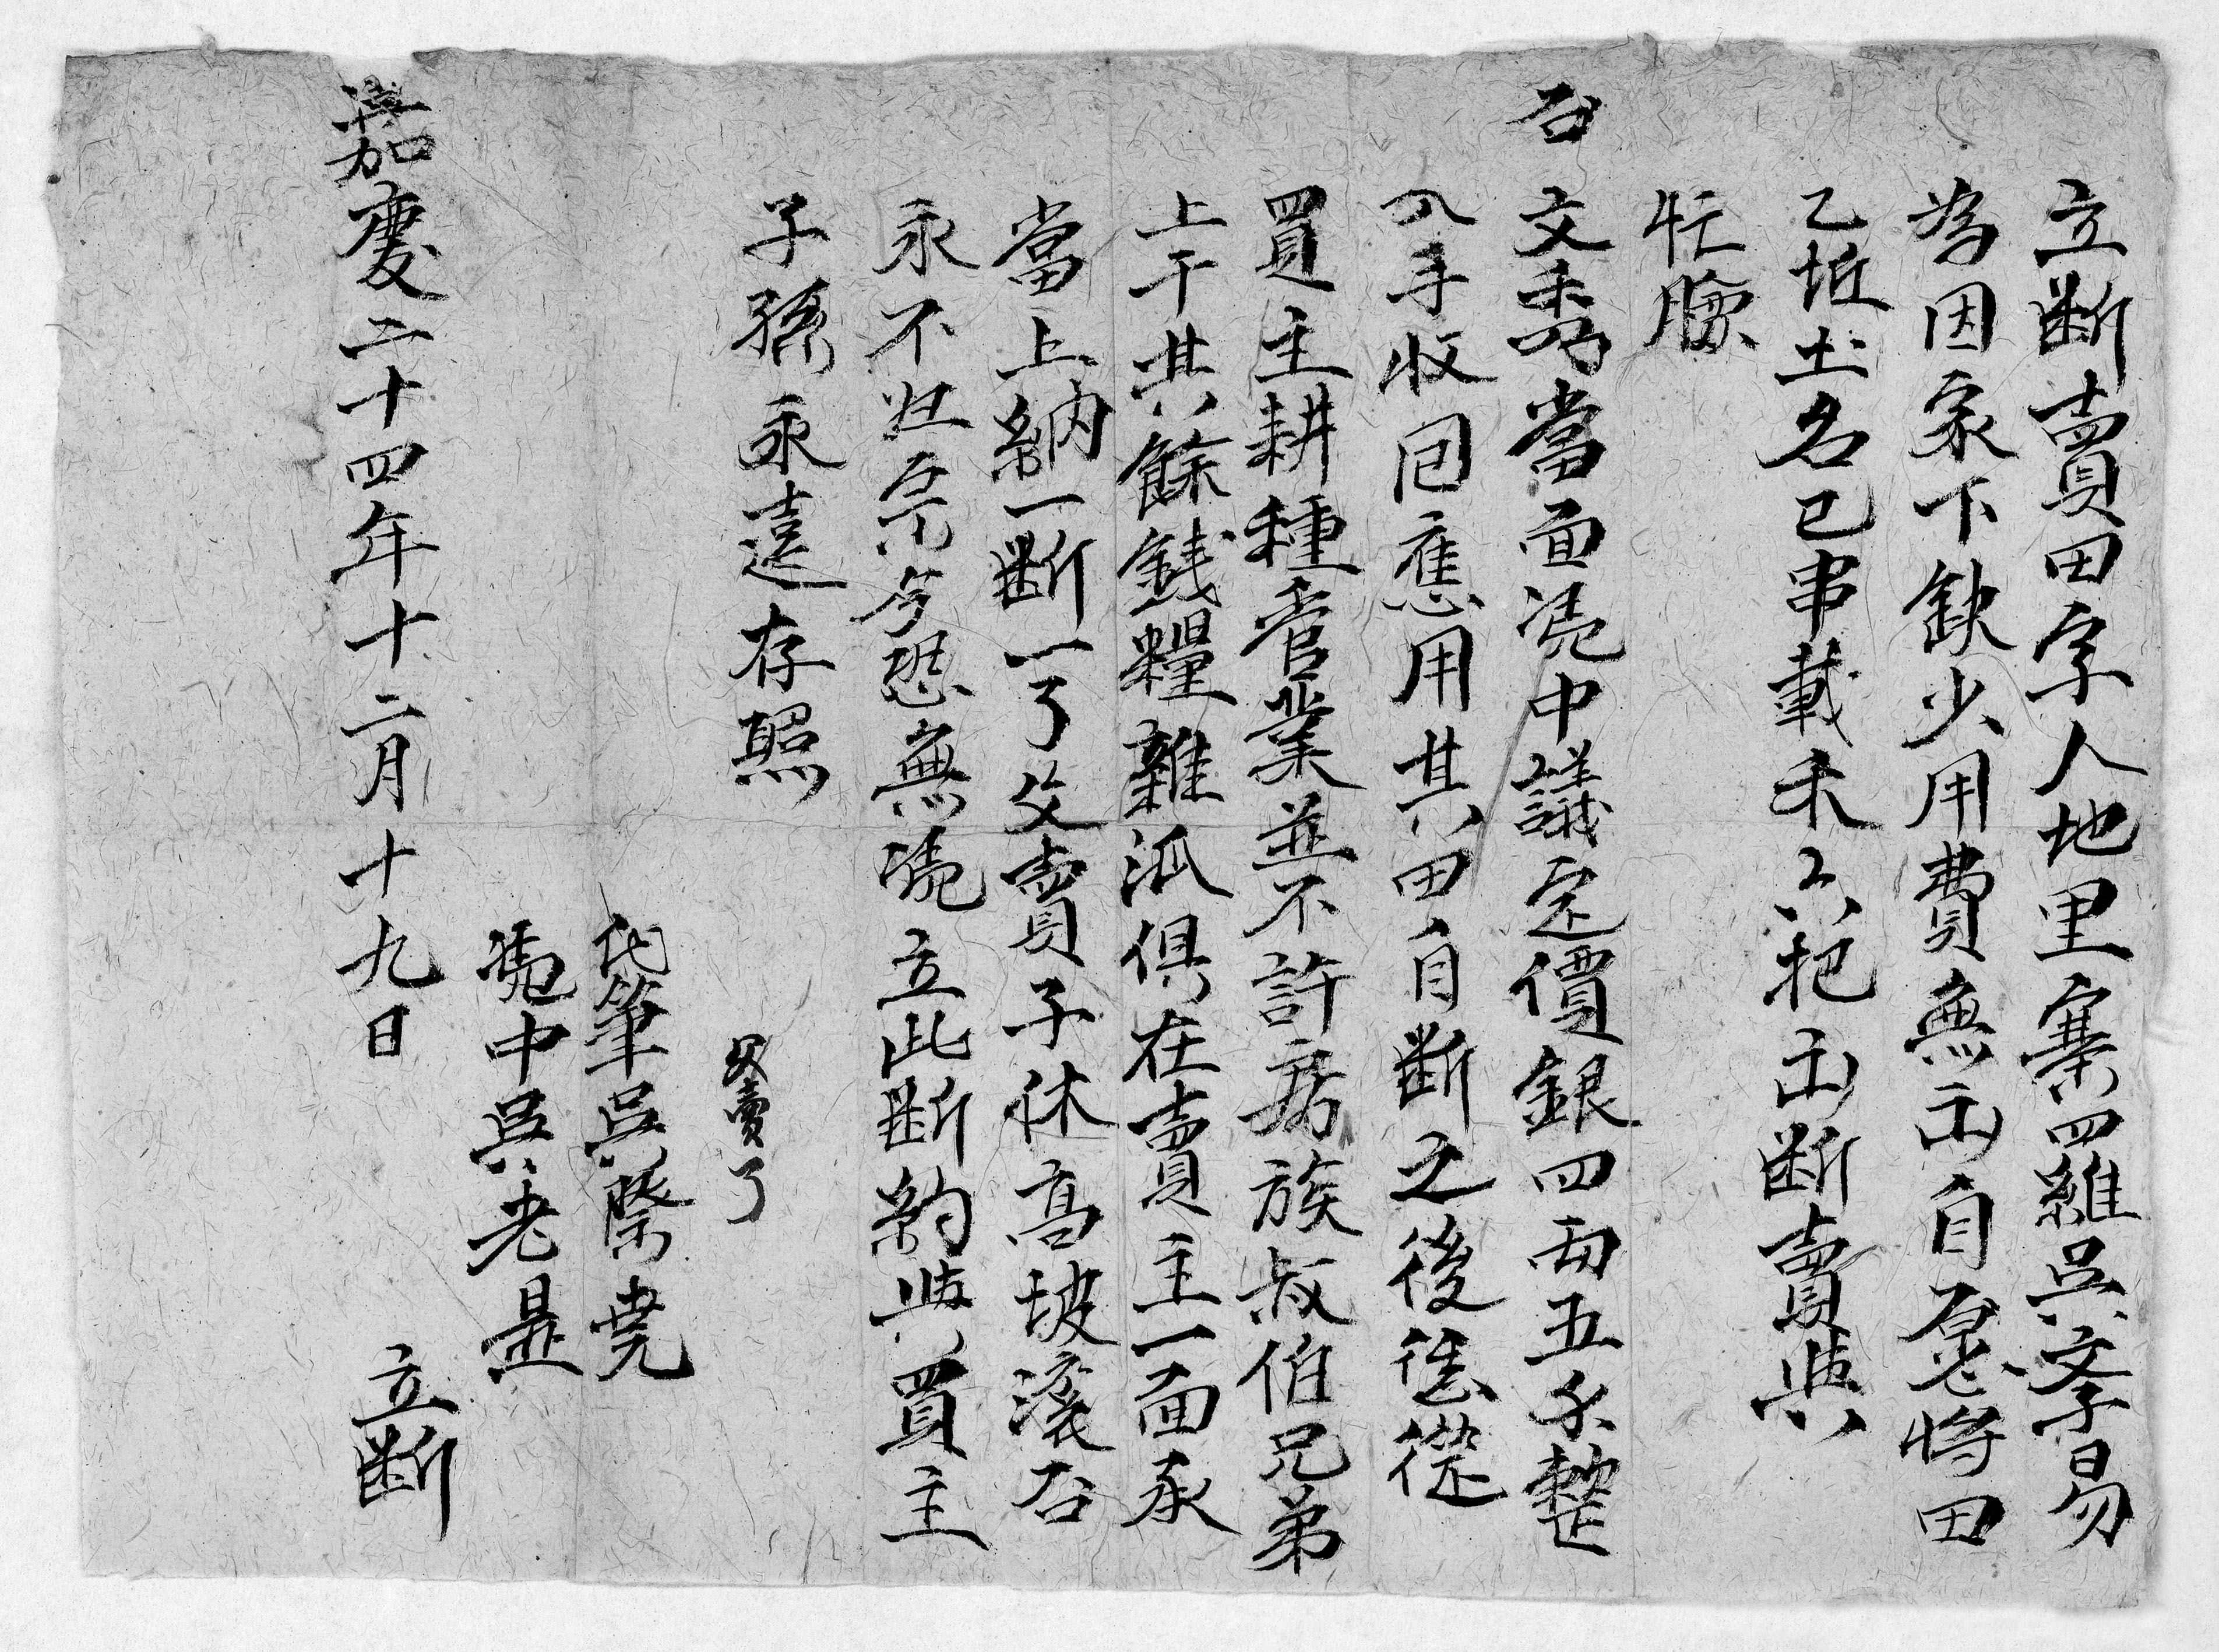 立断賣田字人地里寨四維吳文孝易
為因家下缺少用費無出自愿将田
乙坵土名已串載禾六把出断賣與
牤腰
石
文秀當面凴中議定價銀四両五錢整
入手收囘應用其田自断之後凴從
買主耕種管業並不許房族叔伯兄弟
上干其餘錢糧雜派俱在賣主一面承
當上納一断一了父賣子休高坡滚石
永不歸宗今恐無凴立此断約與買主
子孫永遠存照
父賣了
代筆吳際堯
凴中吳老显
嘉慶二十四年十二月十九日 立断